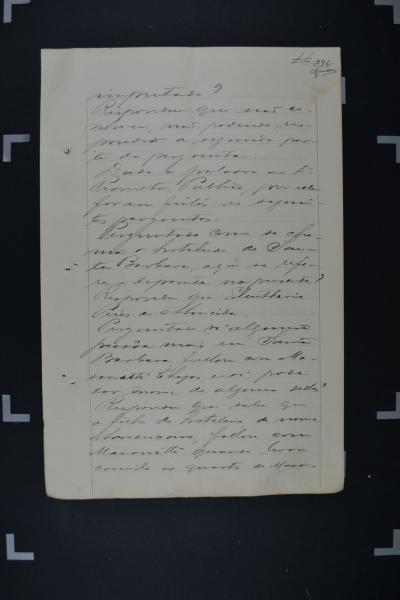 Respondeu que não co-
nhece, não podendo res-
ponder a segunda par-
te da pergunta.
Dada a palavra ao Dr.
Promotor Publico, por elle
foram feitas as seguin-
tes perguntas.
Perguntado como se cha-
ma o hoteleiro de San-
ta Barbara, a que se refe-
re a depoente no presente?
Respondeu que Eleutherio
Pires de Almeida.
Perguntado si alguma
pessôa mais em Santa
Barbara fallou com Ma-
sonetti e si pode
dar o nome de alguma dellas?
Respondeu que sabe que
o filho do hoteleiro de nome
fallou com
Masonetti quando levou
comida ao quarto de Maso-